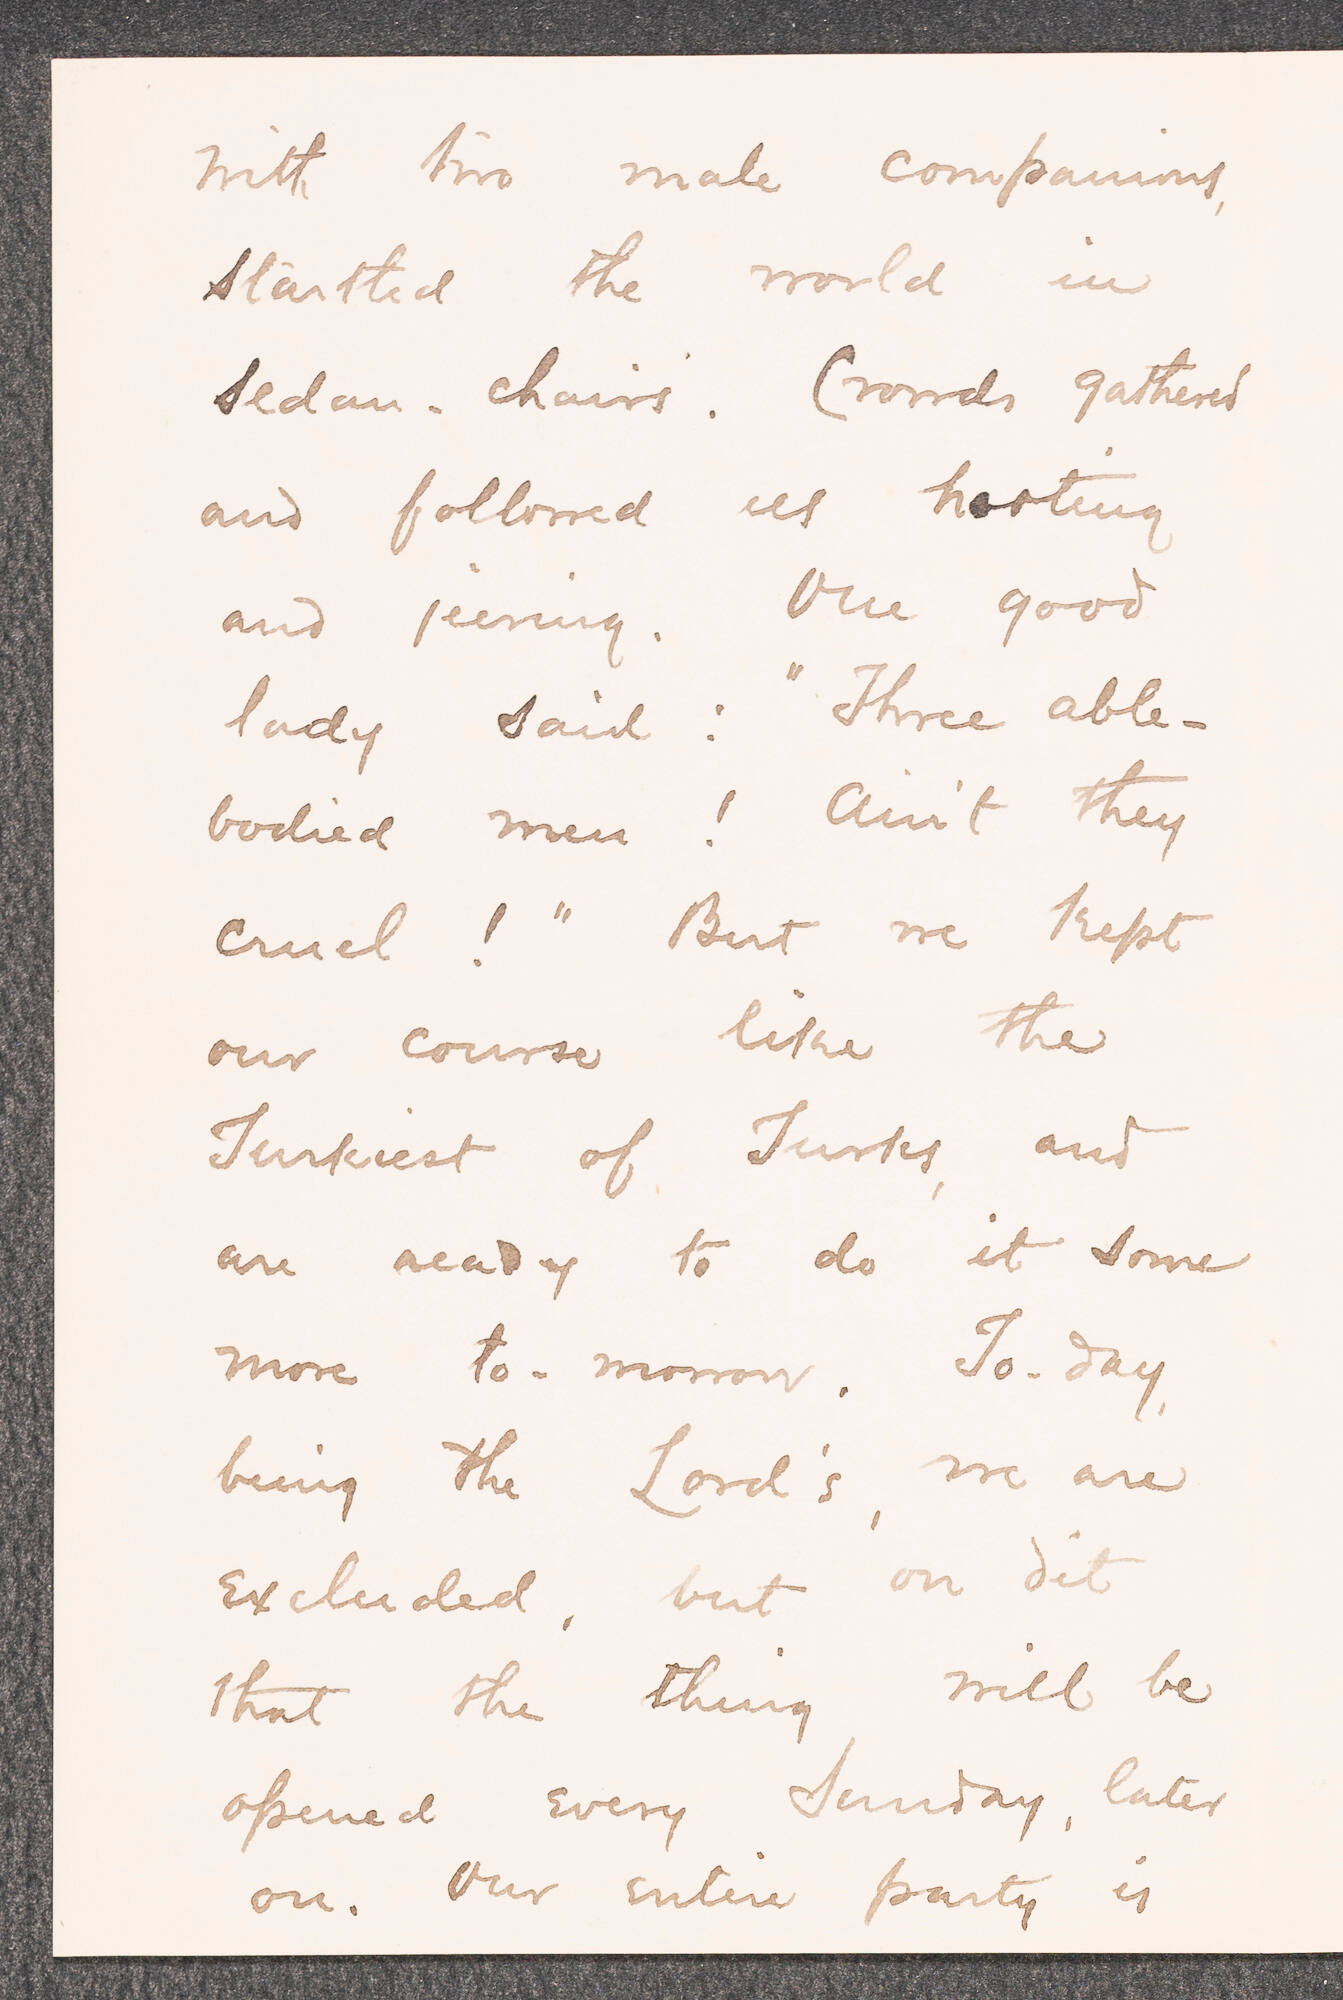 with two male companions,
startled the world in
sedan-chairs. Crowds gathered
and followed us hooting
and jeering. One good
lady said: "Three able-
bodied men! Ain't they
cruel!" But we kept
our course like the
Turkiest of Turks, and
are ready to do it some
more to-morrow. To-day,
being the Lord's, we are
excluded, but on dit
that the thing will be
opened every Sunday, later
on. Our entire party is